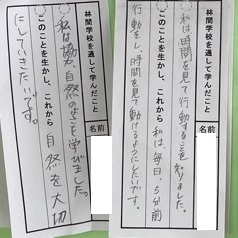 林間学校を通して学んだこと
私は時間を見て行動することを知りました。
このことを生かし、これから
私は、毎日、5分前
行動をし、時間を見て動けるようにしたいです。
名前
林間学校を通して学んだこと
私は協力、自然のことを学びました。
このことを生かし、これから
自然を大切
にしていきたいです。
名前